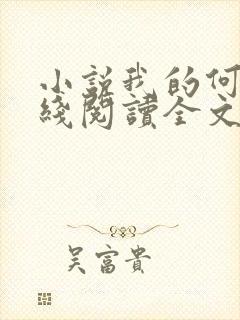 小說我的何
綫閱讀全文
吴富貴